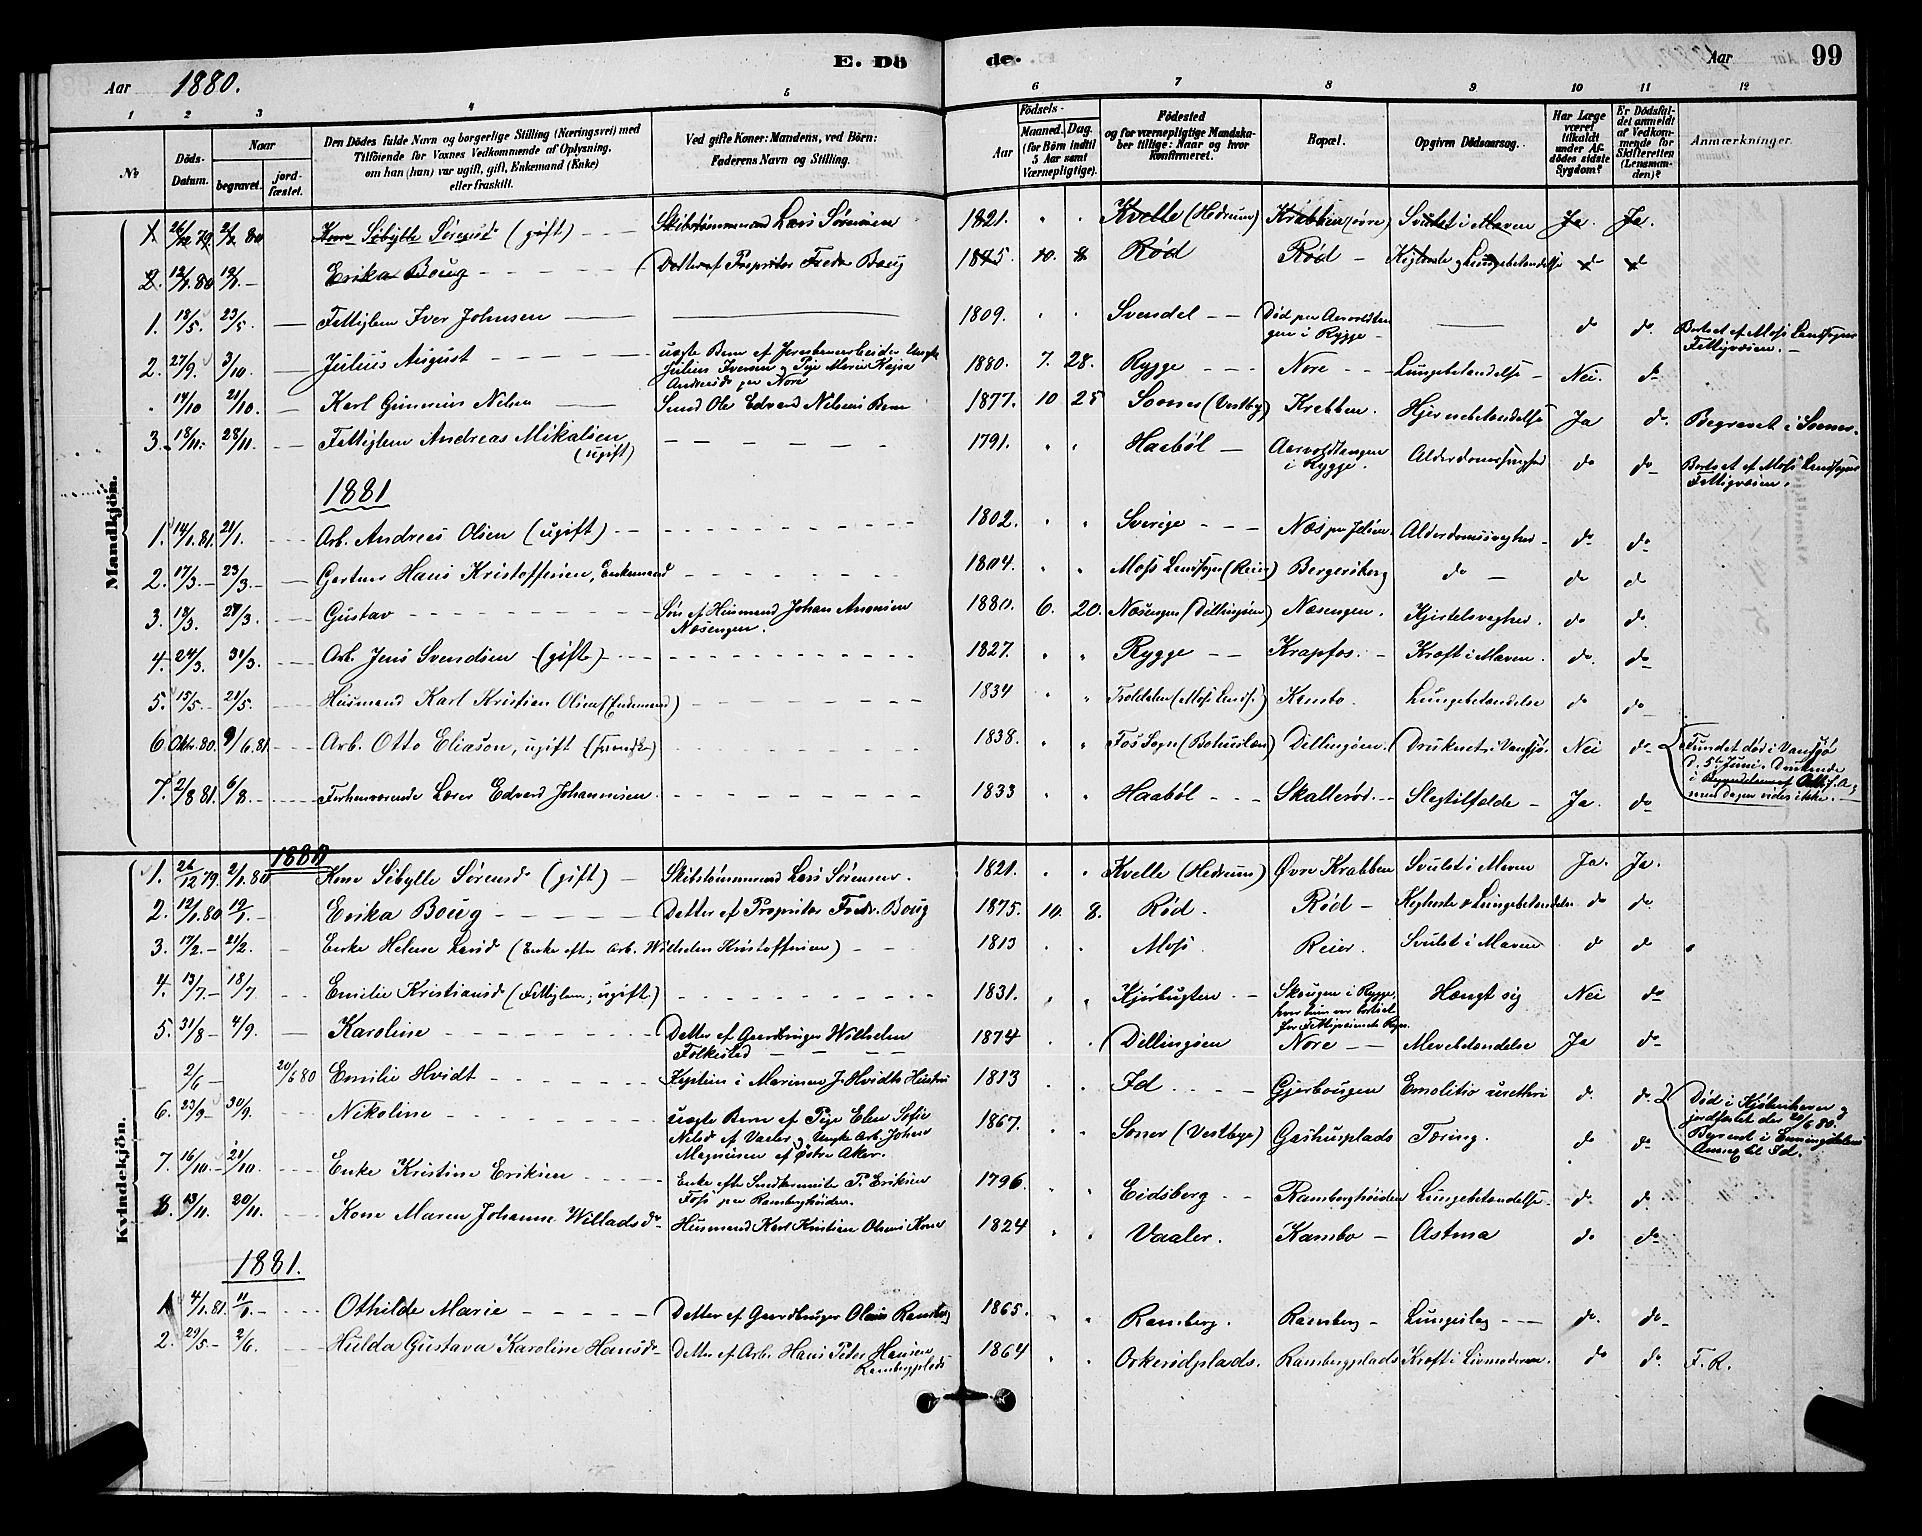 E. Döde.
99
Aar 1880.
Aar
1 2 3 4 5 6 7 8 9 10 11 12
No
Döds-Datum.
Naar begravet. jordfæstet.
Den Dödes fulde Navn og borgerlige Stilling (Næringsvei) med Tilföiende for Voxnes Vedkommende af Oplysning, om han (hun) var ugift, gift, Enkemand (Enke) eller fraskilt.
Ved gifte Koner: Mandens, ved Börn: Faderens Navn og Stilling.
Födsels-
Aar
Maaned. Dag.
(for Börn indtil 5 Aar samt Værnepligtige).
Födested og for værnepligtige Mandskaber tillige: Naar og hvor konfirmeret.
Bopæl.
Opgiven Dödsaarsag.
Har Læge været tilkaldt under Afdödes sidste Sygdom?
Er Dödsfaldet anmeldt af Vedkommende for Skifteretten (Lensmanden)?
Anmærkninger.
Mandkjön.
1. 26/12 79 2/1 80 Kone Sibylle Sørensd (gift) Skibstømmermand Lars Sørensen 1821. Kvelle (Hedrum) Krabben (øvre) Svulst i Maven Ja. Ja.
2. 12/1 80 19/1 Erika Boug Datter af Propritær Fredr Boug 1875 10. 8 Rød Rød Kighoste & Lungebetændelse do do
1. 18/5. 23/5. Fattiglem Iver Johnsen 1809. Svendel Død paa Aarvoldtangen i Rygge do do. Bortsat af Moss Landsogns Fattigvæsen.
2. 27/9. 3/10. Julius August uægte Barn af Jernbanearbeider Ungk. Julius Iversen og Pige Marie Kajsa Andreasd paa Nore 1880. 7. 28. Rygge Nore Lungebetændelse Nei. do
14/10 21/10. Karl Gunerius Nilsen Smed Ole Edvard Nilsens Barn 1877. 10 25 Soner (Vestby) Krabben. Hjernebetændelse Ja do. Begravet i Soner.
3. 18/11. 28/11. Fattiglem Andreas Mikalsen (ugift) 1791. Haabøl Aarvoldtangen i Rygge. Alderdomssvaghed do do Bortsat af Moss Landsogns Fattigvæsen.
1881
1. 14/1.81. 21/1. Arb. Andreas Olsen (ugift) 1802. Sverige Næs paa Jeløen Alderdomssvaghed do do
2. 17/3. 23/3. Gartner Hans Kristoffersen, Enkemand 1804. Moss Landsogn (Reier) Bergersborg do do do
3. 18/3. 27/3. Gustav Søn af Husmand Johan Anonsen Næsengen. 1880. 6. 20. Næsengen (Dillingøen) Næsengen. Kjertelsvaghed. do do.
4. 24/3. 31/3. Arb. Jens Svendsen (gift) 1827. Rygge Krapfos. Kræft i Maven. do. do
5. 15/5. 21/5. Husmand Karl Kristian Olsen (Enkemand) 1834 Troldalen (Moss Lands.) Kambo Lungebetændelse do do
6. Oktr. 80. 9/6.81. Arb. Otto Eliason, ugift (svensk) 1838. Fos Sogn (Bohuslæn) Dillingøen. Druknet i Vansjø. Nei do Fundet død i Vansjø d. 5te Juni. Druknede i Begyndelsen af Oktbr. f.A., men dagen vides ikke.
7. 2/8 81. 6/8. Forhenværende Lærer Edvard Johannesen 1833 Haabøl Skallerød. Slagtilfælde Ja. do
Kvindekjön.
1880
1. 26/12 79. 2/1.80 Kone Sibylle Sørensd (gift) Skibstømmermand Lars Sørensen. 1821. Kvelle (Hedrum) Øvre Krabben Svulst i Maven Ja. Ja.
2. 12/1.80 19/1. Erika Boug Datter af Propritær Fredr. Boug 1875. 10. 8. Rød. Rød Kighoste & Lungebetændelse do do.
3. 17/2. 21/2. Enke Helene Larsd (Enke efter Arb. Wilhelm Kristoffersen) 1813 Moss Reier. Svulst i Maven do do
4. 13/7. 18/7. Emilie Kristiansd (Fattiglem, ugift.) 1831. Kjørbugten Skougen i Rygge, hvor hun var bortsat for Fattigvæsenets Regn. Hængt sig Nei do
5. 31/8 4/9. Karoline Datter af Gaardbruger Wilhelm Folkestad 1874 Dillingøen Nore Mavebetændelse Ja do
2/6 20/6 80 Emilie Hvidt Kaptein i Marinen J. Hvidts Hustru 1813 Id Gjerbougen Emolitio urethri do. do. Død i Kjøbenhavn og jordfæstet der 20/6 80. Begravet i Enningdalens Annex til Id.
6. 23/9 30/9. Nikoline uægte Barn af Pige Elen Sofie Nilsd af Vaaler og Ungk. Arb. Johan Magnusen af Østre Aker. 1867. Soner (Vestbye) Gashusplads Tæring. do do.
7. 16/10. 21/10. Enke Kristine Eriksen Enke efter Snedkermester P. Eriksen Foss paa Ramberghøiden. 1796. Eidsberg Ramberghøiden Lungebetændelse do. do.
8. 13/11. 20/11. Kone Maren Johanne Willadsdr Husmand Karl Kristian Olsens Kone 1824 Vaaler. Kambo Astma do do
1881.
1. 4/1.81. 11/1. Othilde Marie Datter af Gaardbruger Olaus Ramberg 1865. Ramberg. Ramberg Lungeslag do. do
2. 29/5 2/6. Hulda Gustava Karoline Hansdr Datter af Arb. Hans Peter Hansen Rambergplads 1864 Orkerødplads. Rambergplads Kræft i Livmoderen. do do. F. R.